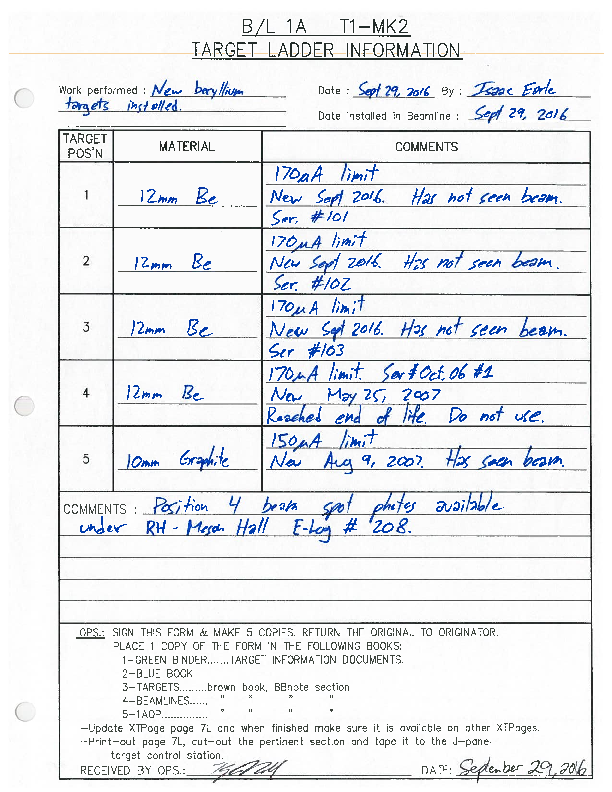 B/L 1A T1-MK2
TARGET LADDER INFORMATION
Work performed : New beryllium
targets installed.
Date : Sept 29, 2016 By : Isaac Earle
Date Installed in Beamline : Sept 29, 2016
TARGET POS'N MATERIAL COMMENTS
1 12mm Be
170µA limit
New Sept 2016. Has not seen beam.
Ser. #101
2 12mm Be
170µA limit
New Sept 2016. Has not seen beam.
Ser. #102
3 12mm Be
170µA limit
New Sept 2016. Has not seen beam.
Ser #103
4 12mm Be
170µA limit. Ser # Oct. 06 #1
New May 25, 2007
Reached end of life. Do not use.
5 10mm Graphite
150µA limit
New Aug 9, 2007. Has seen beam.
COMMENTS : Position 4 beam spot photos available
under RH - Meson Hall E-Log # 208.
OPS.: SIGN THIS FORM & MAKE 5 COPIES. RETURN THE ORIGINAL TO ORIGINATOR.
PLACE 1 COPY OF THE FORM IN THE FOLLOWING BOOKS:
1-GREEN BINDER.......TARGET INFORMATION DOCUMENTS.
2-BLUE BOOK
3-TARGETS.........brown book, BBnote section
4-BEAMLINES....., " " " "
5-1AOP.............. " " " "
-Update XTPage page 7L and when finished make sure it is available on other XTPages.
-Print-out page 7L, cut-out the pertinent section and tape it to the J-pane
target control station.
RECEIVED BY OPS.: DATE: September 29, 2016